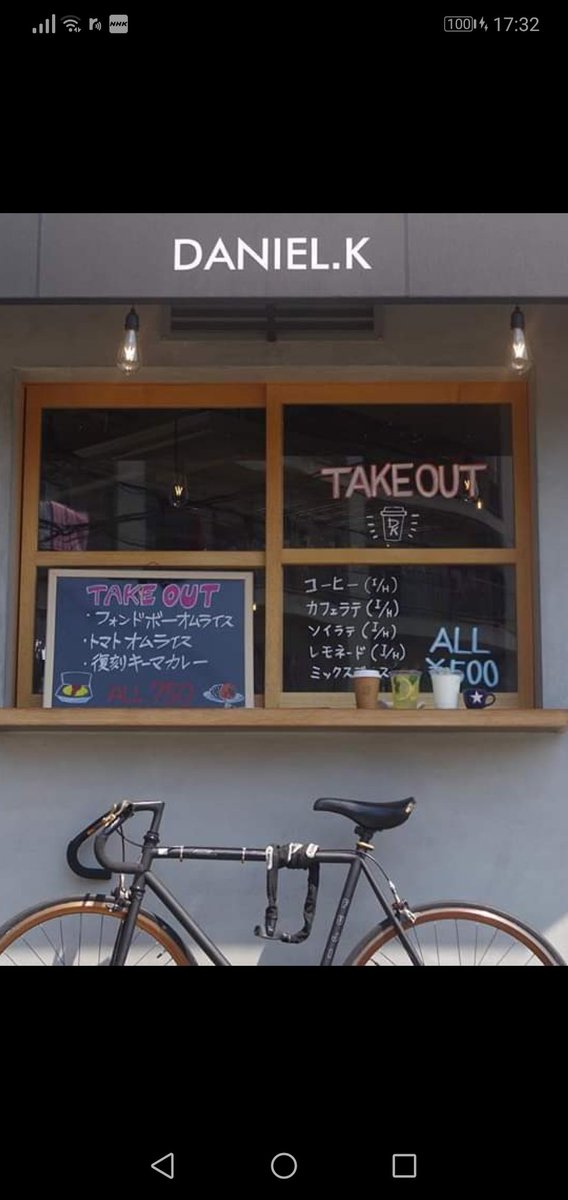 100
17:32
NHK
DANIEL.K
TAKE OUT
・フォンドボーオムライス
・トマトオムライス
・復刻キーマカレー
ALL 750
TAKEOUT
DK
コーヒー (I/H)
カフェラテ (I/H)
ソイラテ (I/H)
レモネード (I/H)
ミックスジュース
ALL
¥500